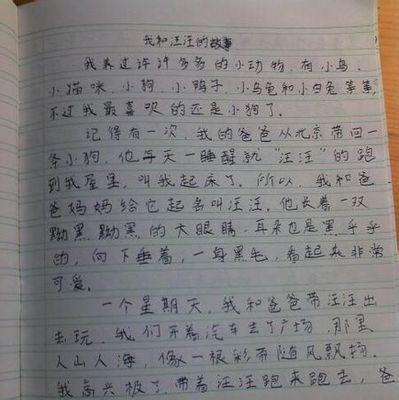 我和汪汪的故事
我养过许许多多的小动物，有小鸟、
小猫咪、小狗、小鸭子、小乌龟和小白兔等等，
不过我最喜欢的还是小狗了。
记得有一次，我的爸爸从北京带回一
条小狗，他每天一睡醒就“汪汪”的跑
到我屋里，叫我起床了。所以，我和爸
爸妈妈给它起名叫汪汪。他长着一双
黝黑黝黑的大眼睛，耳朵也是黑乎乎
的，向下垂着，一身黑毛，看起来非常
可爱。
一个星期天，我和爸爸带汪汪出
去玩，我们开着汽车去了广场，那里
人山人海，像一根彩带随风飘拘，
我高兴极了，带着汪汪跑来跑去，爸